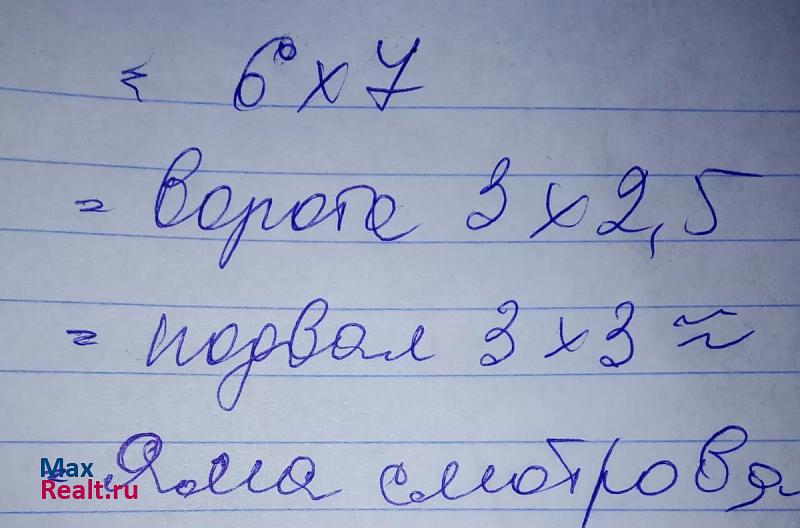 = 6 х 7
= ворота 3 х 2,5
= подвал 3 х 3 ≈
= Яма смотровая
Max
Realt.ru